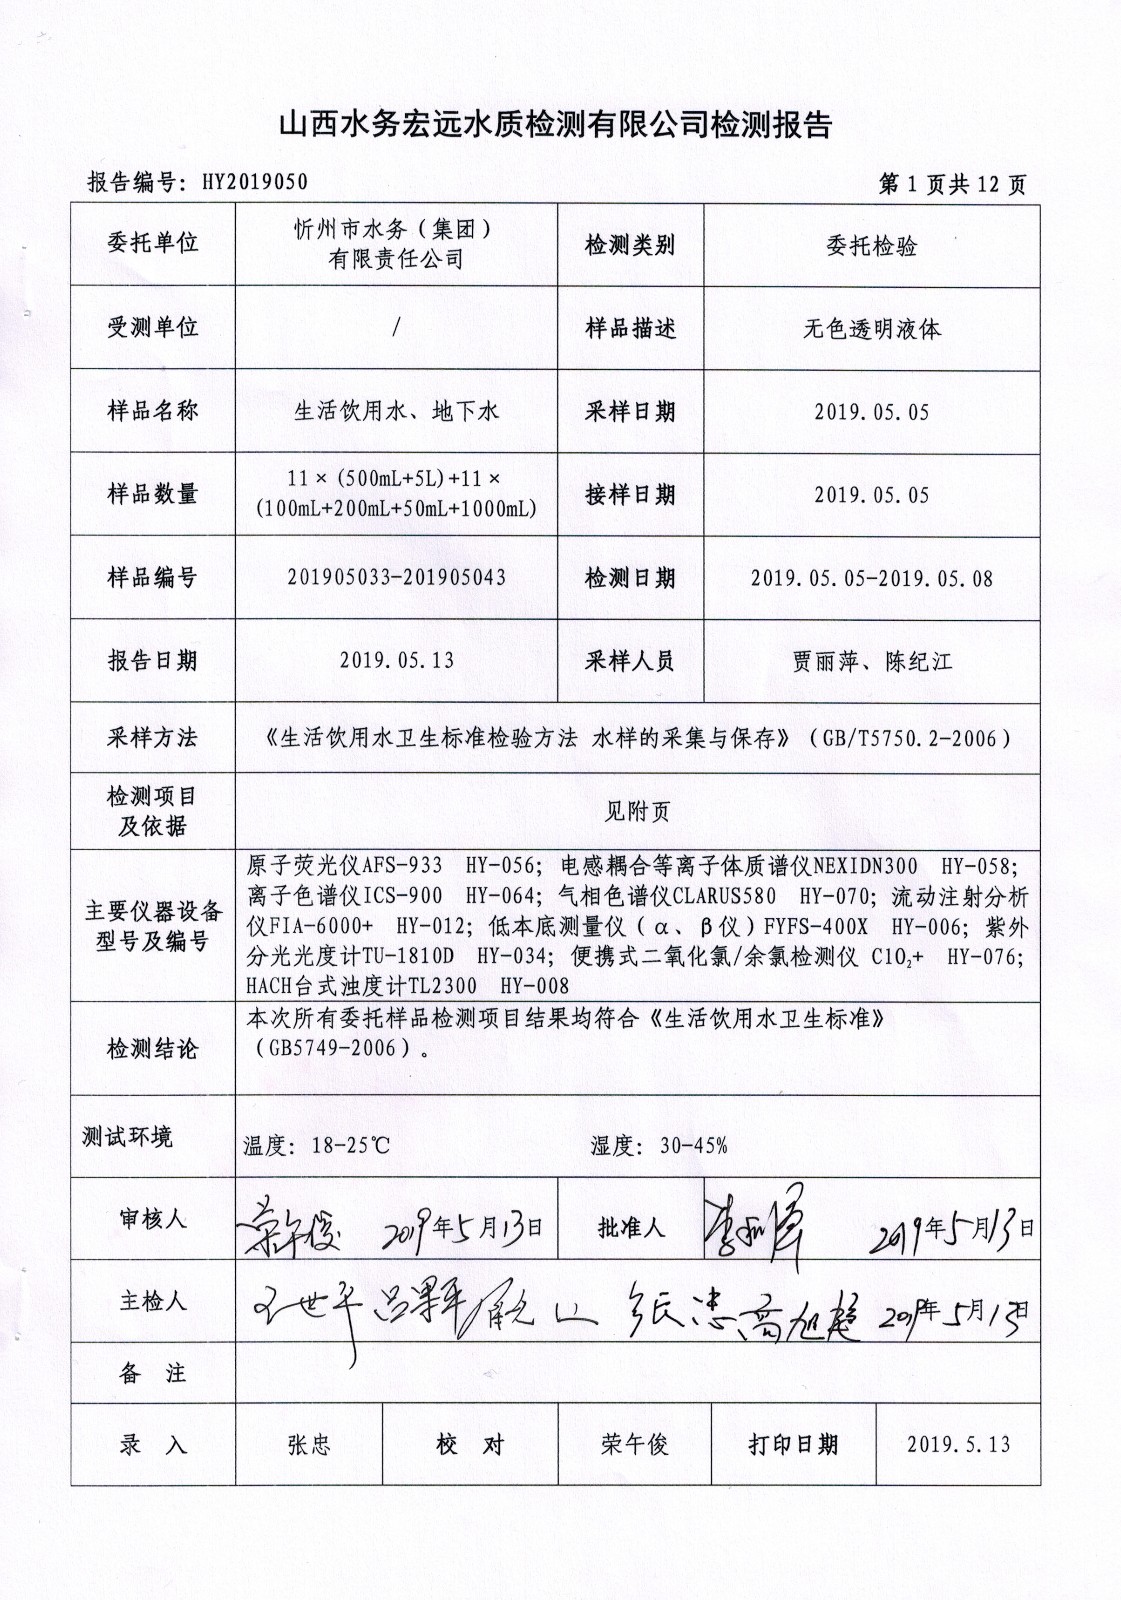 山西水务宏远水质检测有限公司检测报告
报告编号：HY2019050
第 1 页共 12 页
委托单位
忻州市水务（集团）
有限责任公司
检测类别
委托检验
受测单位
/
样品描述
无色透明液体
样品名称
生活饮用水、地下水
采样日期
2019.05.05
样品数量
11×(500mL+5L)+11×
(100mL+200mL+50mL+1000mL)
接样日期
2019.05.05
样品编号
201905033-201905043
检测日期
2019.05.05-2019.05.08
报告日期
2019.05.13
采样人员
贾丽萍、陈纪江
采样方法
《生活饮用水卫生标准检验方法 水样的采集与保存》（GB/T5750.2-2006）
检测项目
及依据
见附页
主要仪器设备
型号及编号
原子荧光仪AFS-933 HY-056；电感耦合等离子体质谱仪NEXIDN300 HY-058；
离子色谱仪ICS-900 HY-064；气相色谱仪CLARUS580 HY-070；流动注射分析
仪FIA-6000+ HY-012；低本底测量仪（α、β仪）FYFS-400X HY-006；紫外
分光光度计TU-1810D HY-034；便携式二氧化氯/余氯检测仪 ClO₂+ HY-076；
HACH台式浊度计TL2300 HY-008
检测结论
本次所有委托样品检测项目结果均符合《生活饮用水卫生标准》
（GB5749-2006）。
测试环境
温度：18-25℃
湿度：30-45%
审核人
荣午俊 2019年5月13日
批准人
2019年5月13日
主检人
张忠 高旭 2019年5月13日
备 注
录 入
张忠
校 对
荣午俊
打印日期
2019.5.13